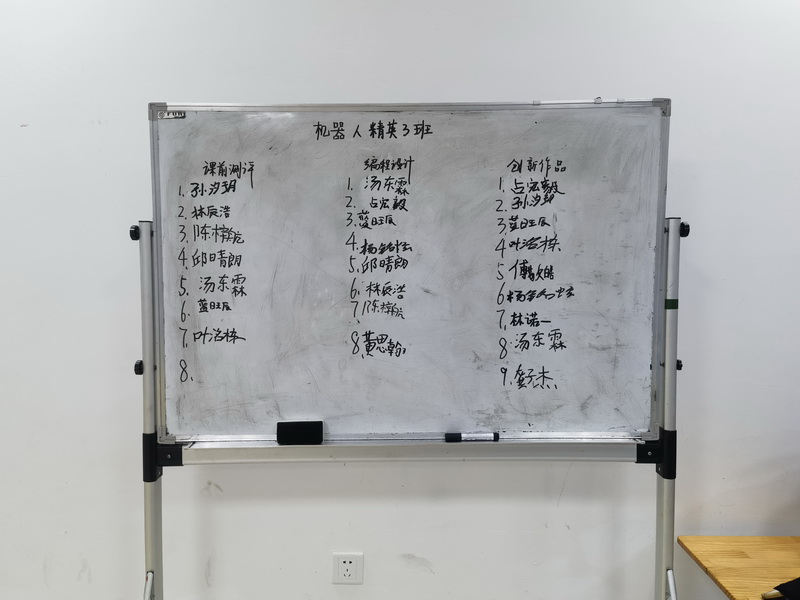 机器人精英3班
课前测评
1. 孙汐玥
2. 林辰浩
3. 陈梓航
4. 邱晴朗
5. 汤东霖
6. 蓝旺辰
7. 叶浩栋
8.
编程设计
1. 汤东霖
2. 占宏毅
3. 蓝旺辰
4. 杨
5. 邱晴朗
6. 林辰浩
7. 陈梓航
8. 黄思翰
创新作品
1. 占宏毅
2. 孙汐玥
3. 蓝旺辰
4 叶浩栋
5 傅
6 杨
7. 林诺一
8. 汤东霖
9. 龚子杰